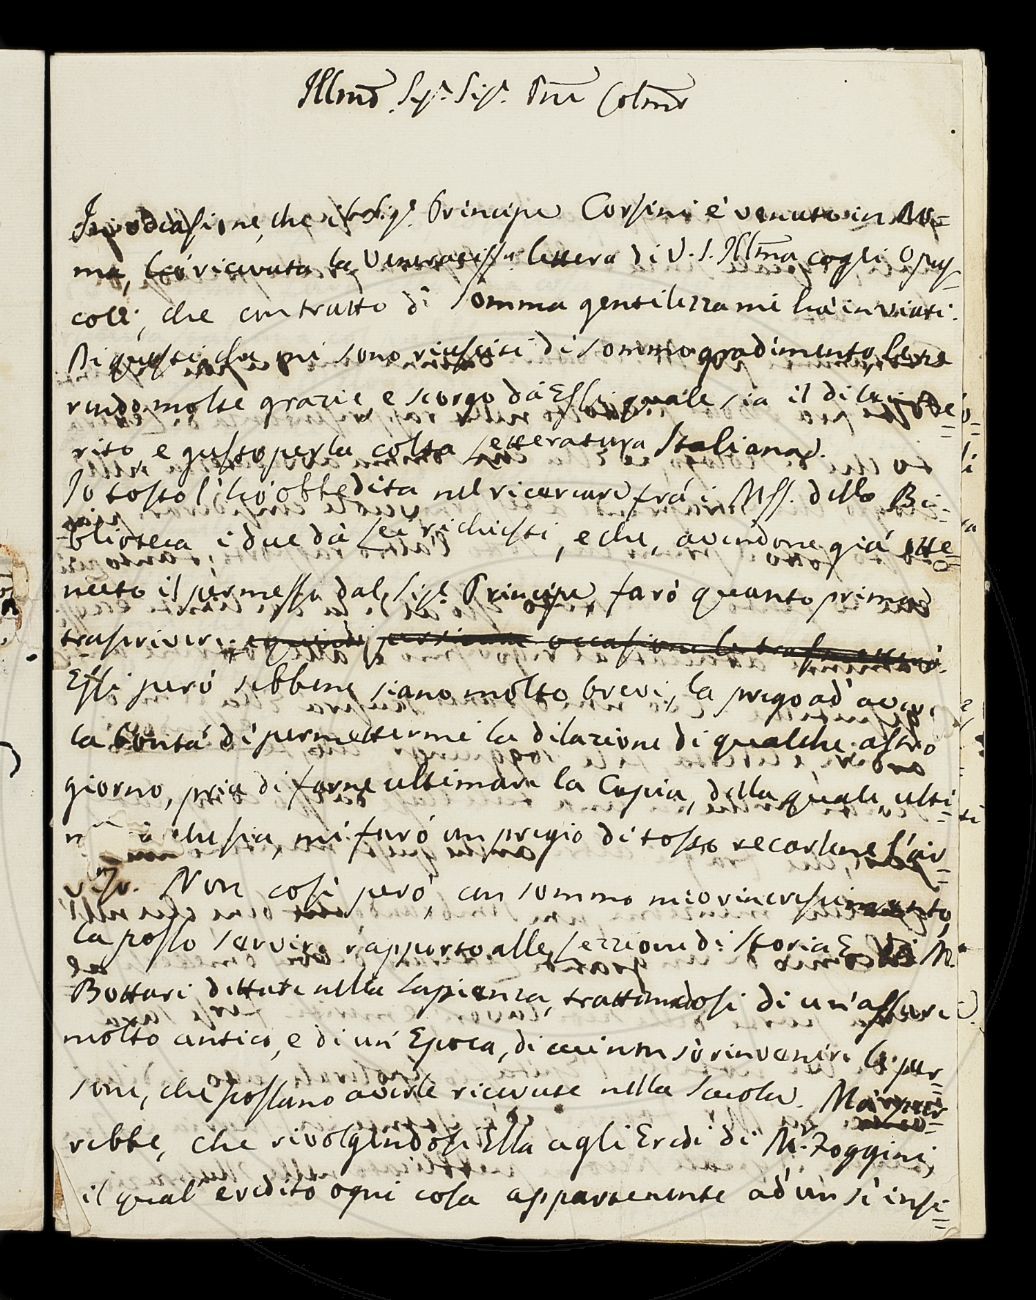 Illmo Sigr. Sigr. Pne Colmo
In occasione, che il Sigr. Principe Corsini è venuto in Ro=
ma, hò ricevuta la veneratissa. lettera di V. S. Illma cogli Opus=
coli, che con tratto di somma gentilezza mi hà inviati.
Di questi che mi sono riusciti di sommo gradimento, le ne
rendo molte grazie e scorgo dà Essi quale sia il di Lei me
rito e gusto per la colta Letteratura Italiana.
Io tosto l'hò obbedita nel ricercare frà i Mss. della Bi=
blioteca i due dà Lei richiesti, e che, avendone già otte=
nuto il permesso dal Sigr. Principe farò quanto prima
trascrivere.
Essi però sebbene siano molto brevi, la prego ad avere
la bontà di permettermi la dilazione di qualche altro
giorno, pria di farne ultimare la Copia, della quale, ulti=
mi farò un pregio di tosto recarlene l'av=
viso. Non così però, con sommo mio rincrescimento,
la posso servire rapporto alle Lezzioni di Storia E. di Mr.
Bottari dettate nella Sapienza, trattandosi di un'affare
molto antico, e di un' Epoca, di cui non sò rinvenire le per=
sone, che possano averle ricevute nella Scuola. Mà
rebbe, che rivolgendosi Ella agli Eredi di Mr. Foggini,
il qual' eredito ogni cosa appartenente ad un sì insi=